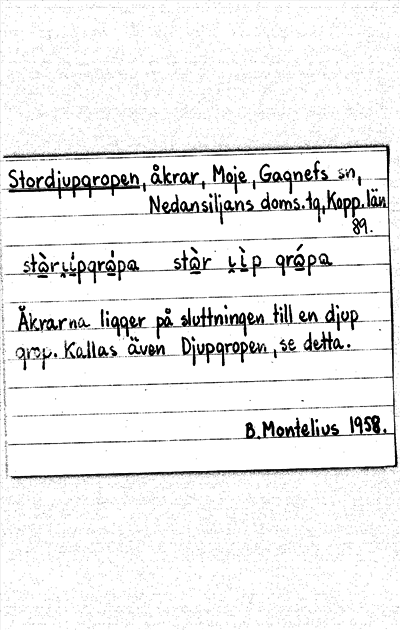 Stordjupgropen, åkrar, Moje, Gagnefs sn,
Nedansiljans doms.tg, Kopp. län
89.
Åkrarna ligger på sluttningen till en djup
grop. Kallas även Djupgropen, se detta.
B. Montelius 1958.